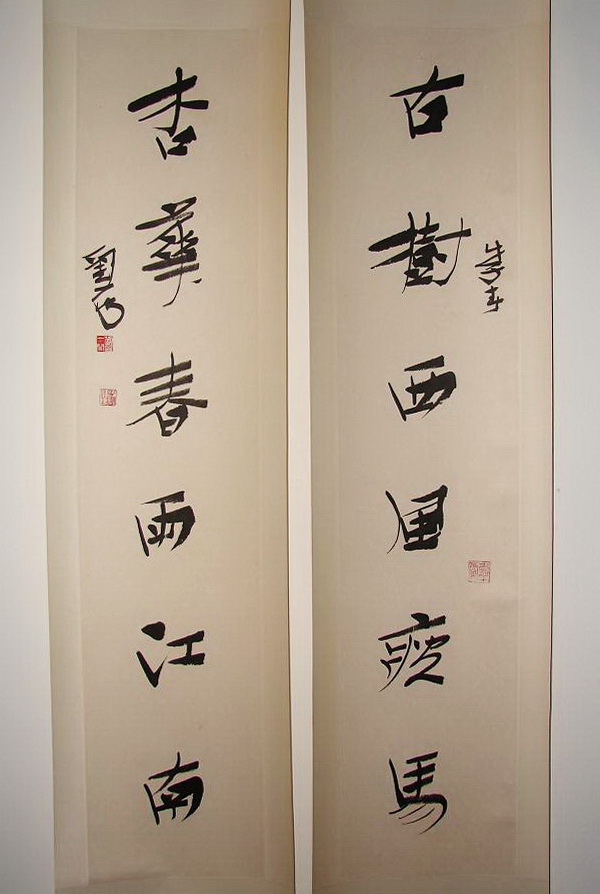 古樹西風瘦馬
杏華春雨江南